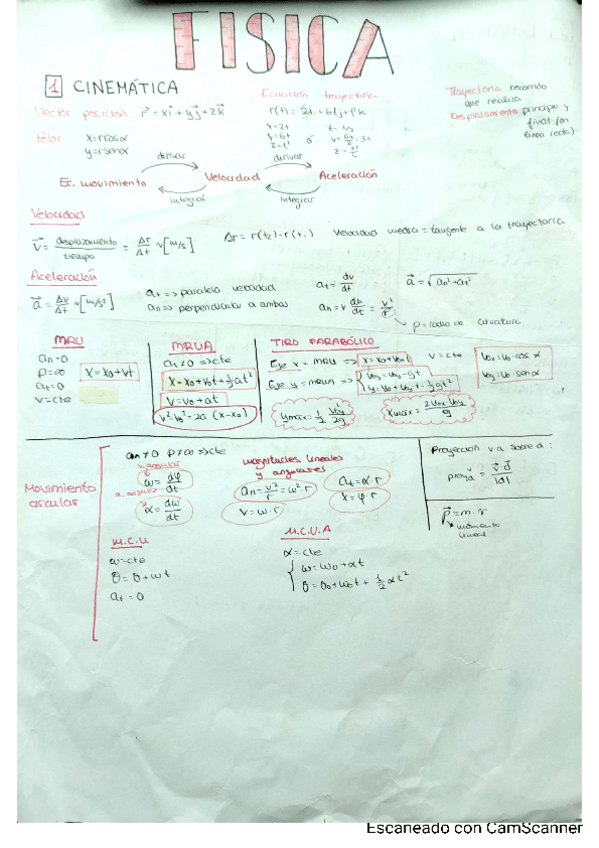 FISICA
1 CINEMÁTICA
Vector posición r⃗ = xi⃗ + yj⃗ + zk⃗
Ecuación trayectoria
r(t) = 2t + 6tj + t²k
x=2t
y=6t
z=t²
ó
Polar x=rcosα
y=rsenα
Trayectoria recorrido
que realiza
Desplazamiento principio y
final (en
línea recta)
derivar derivar
Ec. movimiento Velocidad Aceleración
integrar integrar
Velocidad
v⃗ = desplazamiento/tiempo = Δr/Δt ~ [m/s] Δr = r(t₂) - r(t₁) Velocidad media = tangente a la trayectoria
Aceleración
a⃗ = Δv/Δt ~ [m/s²]
at => paralela velocidad
an => perpendicular a ambas
at = dv/dt
an = v du/dt = v²/r
a⃗ = √an²-at²
ρ = radio de curvatura
MRU
an=0
ρ=∞
at=0
v=cte
x = x₀+vt
MRUA
at≠0 => cte
x = x₀+v₀t+½at²
v = v₀+at
v²-v₀² = 2a (x-x₀)
TIRO PARABÓLICO
Eje x = MRU => x = x₀+v₀xt v = cte
Eje y = MRUA => vy = v₀y-gt
y = y₀+v₀yt-½gt²
v₀x = v₀·cosα
v₀y = v₀·senα
ymax = ½ v₀y²/2g
xmax = 2v₀x·v₀y/g
Movimiento
circular
an≠0 ρ≠∞ => cte
v. angular
ω = dφ/dt
a. angular
α = dω/dt
magnitudes lineales
y angulares
an = v²/r = ω²·r
at = α·r
v = ω·r
x = φ·r
Proyección v a sobre d:
v⃗·d⃗/|d|
p⃗ = m·v
momento
lineal
M.C.U
ω=cte
θ = θ+ωt
at = 0
M.C.U.A
α=cte
ω = ω₀+αt
θ = θ₀+ω₀t + ½αt²
Escaneado con CamScanner